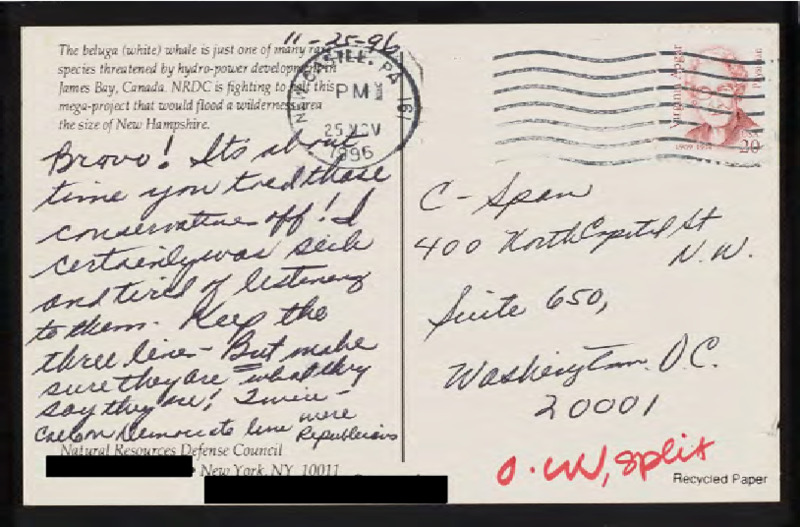 11-25-96
The beluga (white) whale is just one of many rare
species threatened by hydro-power development in
James Bay, Canada. NRDC is fighting to halt this
mega-project that would flood a wilderness area
the size of New Hampshire.
NEW CASTLE, PA 161
PM
25 NOV
1996
Virginia Apgar
Physician
1909-1974
USA
20
Bravo! Its about
time you told those
conservatives off! I
certainly was sick
and tired of listening
to them. Keep the
three lines - But make
sure they are what they
say they are! Twice -
Callers on Democrats line were
Republicans
Natural Resources Defense Council
• New York, NY 10011
C-Span
400 North Capitol St
N.W.
Suite 650,
Washington D.C.
20001
split
Recycled Paper